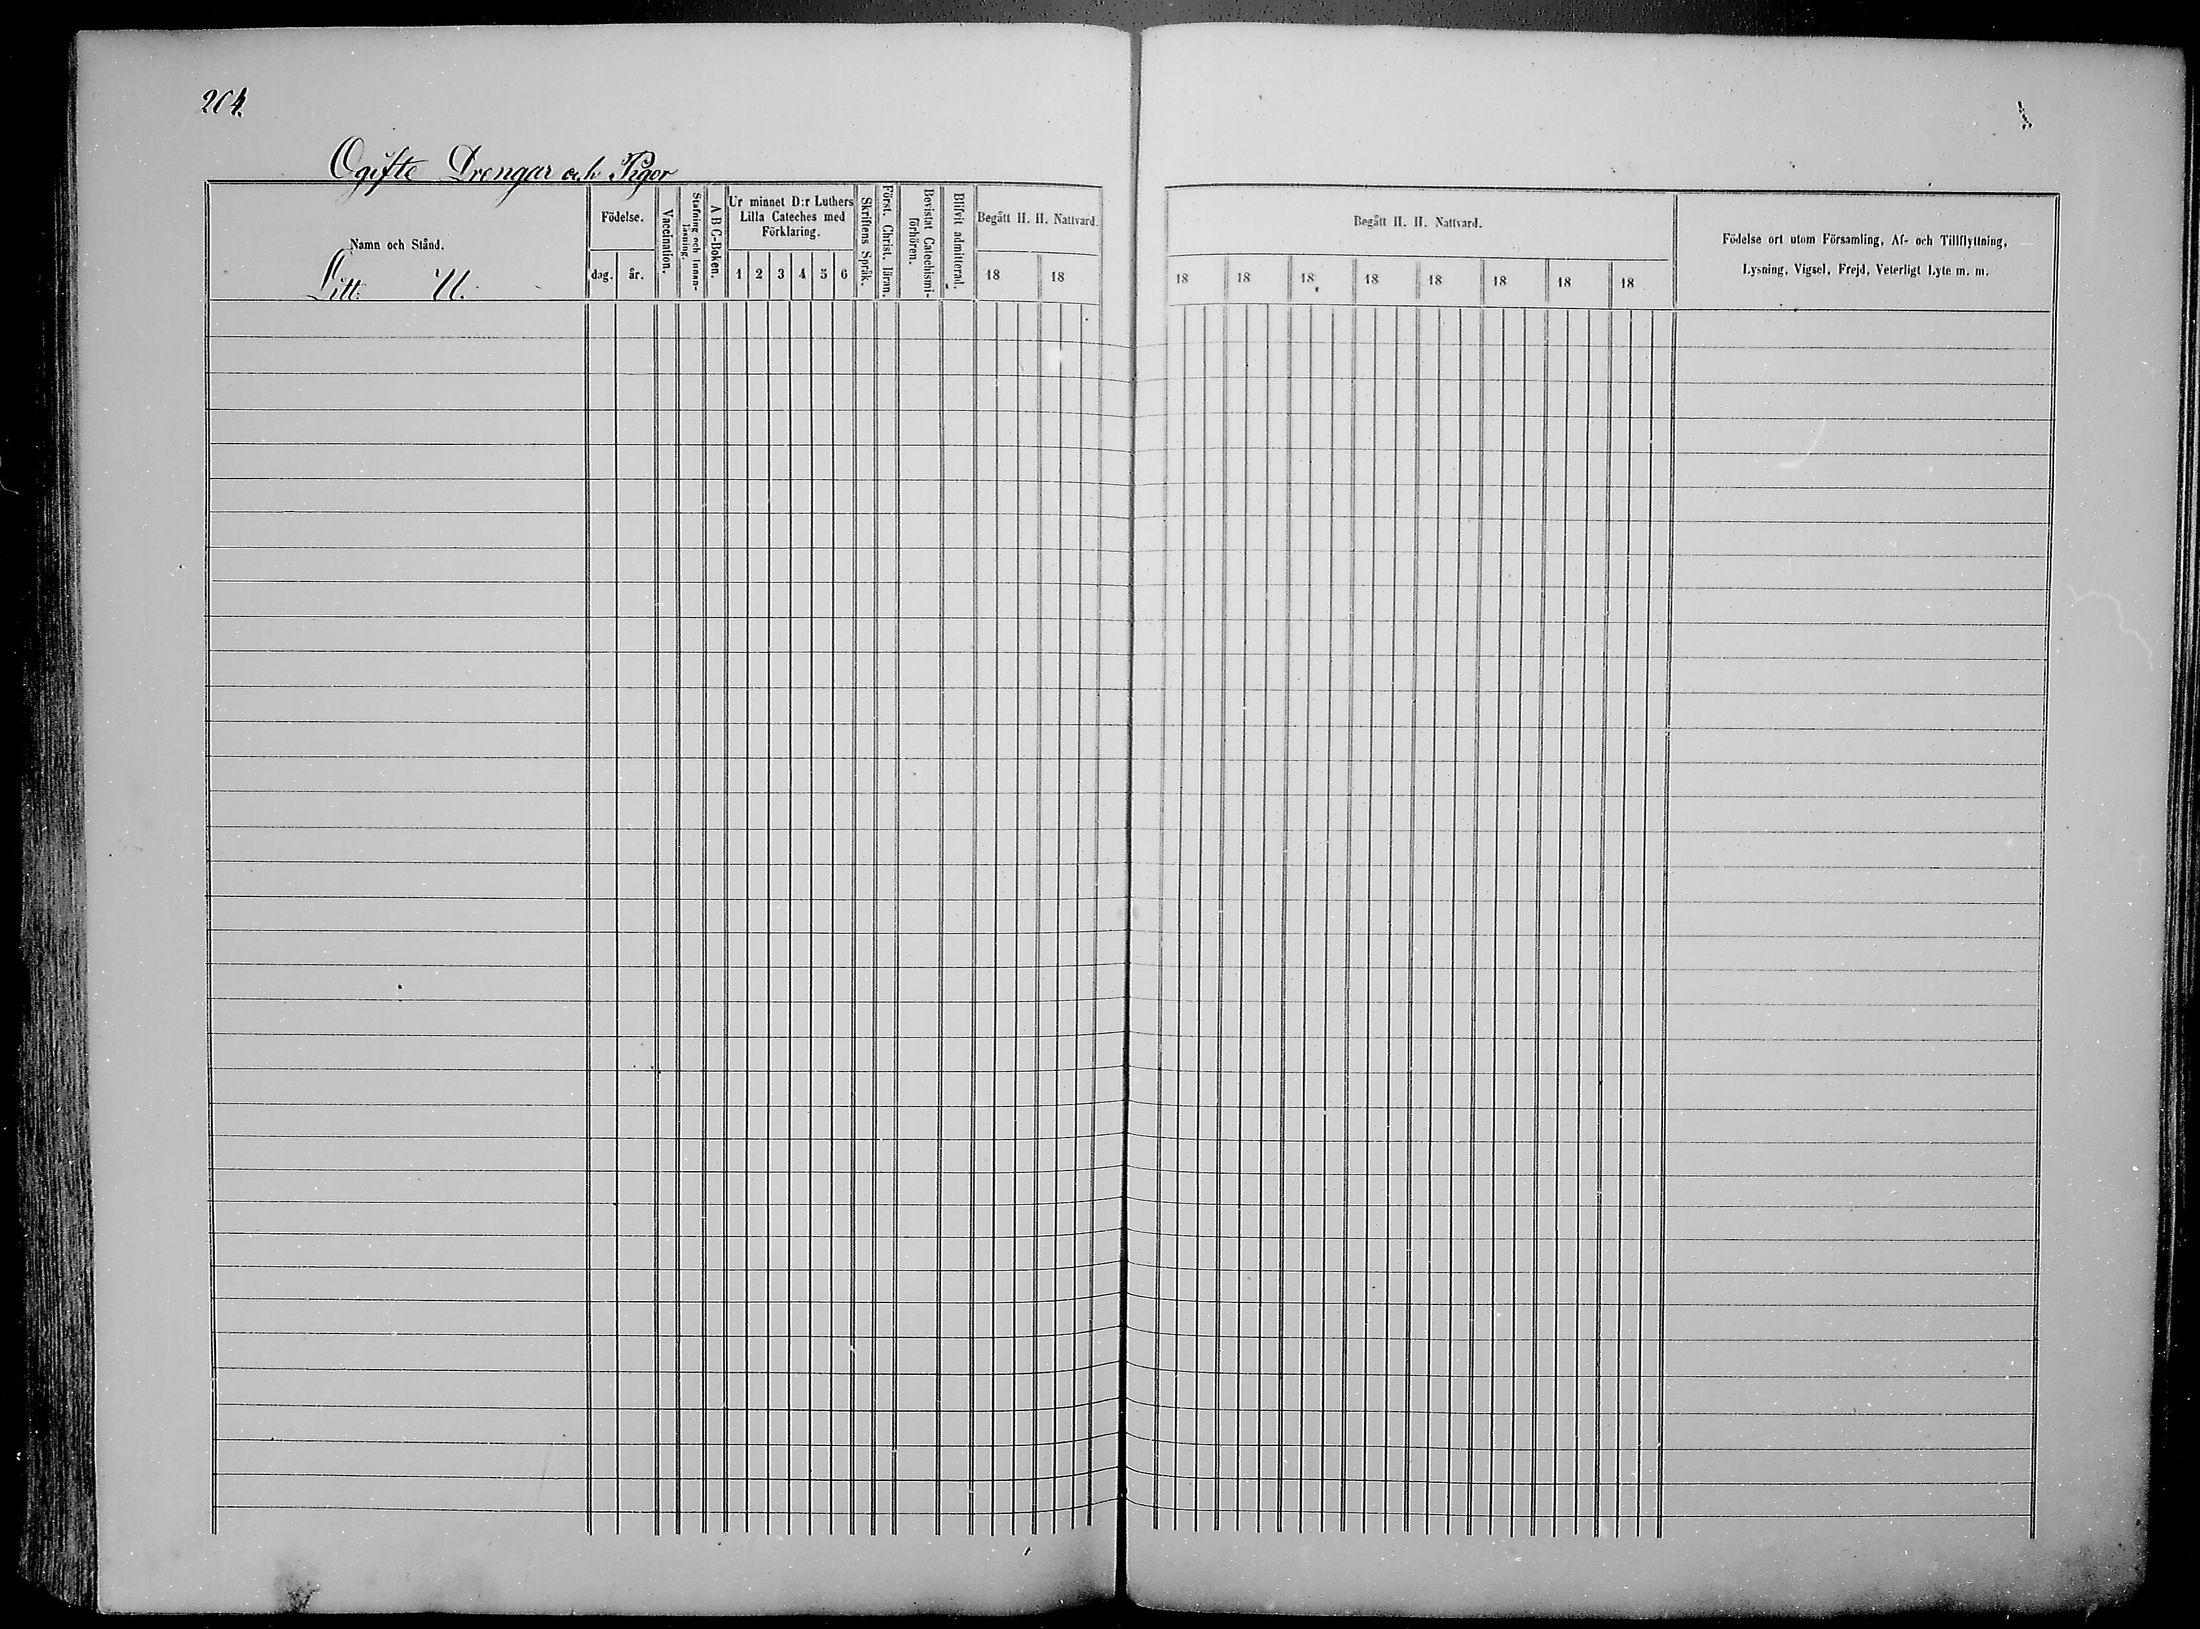 204.
Ogifte Drengar och Pigor
Namn och Stånd.
Litt. U.
Födelse.
dag. år.
Vaccination.
Stafning och Innan-
läsning.
A B C-Boken.
Ur minnet D:r Luthers
Lilla Cateches med
Förklaring.
1 2 3 4 5 6
Skriftens Språk.
Först. Christ. läran.
Bevistat Catechismi-
förhören.
Blifvit admitterad.
Begått H. H. Nattvard.
18 18
Begått H. H. Nattvard.
18 18 18 18 18 18 18 18
Födelse ort utom Församling, Af- och Tillflyttning,
Lysning, Vigsel, Frejd, Veterligt Lyte m. m.